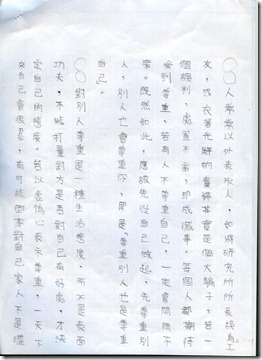 人常常以外表取人，如將研究所所長誤為工
友，或衣著光鮮的貴婦其實是個大騙子，若一
個誤判，處置不當，即成憾事。每個人都期待
受到尊重，若有人不尊重自己，一定會悶悶不
樂。既然如此，應該先從自己做起，先尊重別
人，別人也會尊重你，即是「尊重別人也是尊重
自己。
對別人尊重是一種生活態度，而不是表面
功夫，不能打量對方是否對自己有好處，才決
定自己的態度。若以虛偽心表示尊重，一天下
來自己會很累，有可能回家對自己家人不是擺